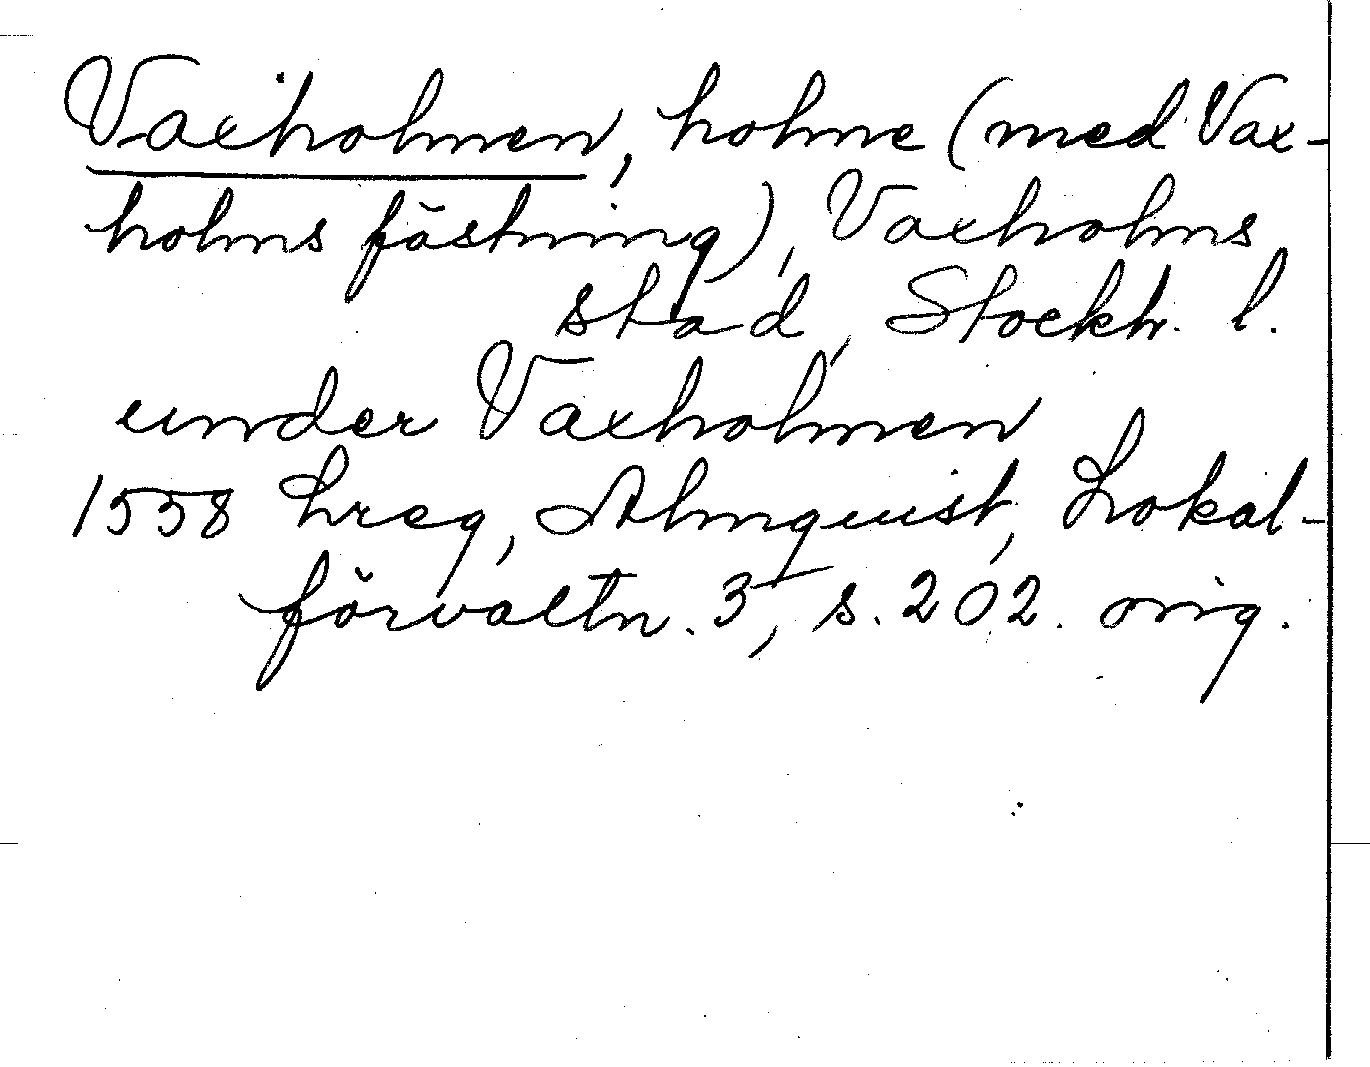 Vaxholmen, holme (med Vax-
holms fästning), Vaxholms
stad, Stockh. l.
under Vaxholmen
1558 Lreg, Almquist, Lokal-
förvaltn. 3, s. 202. orig.